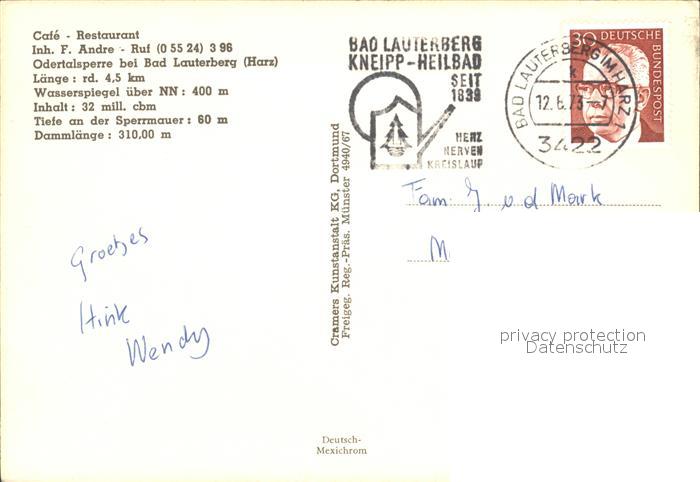 Café - Restaurant
Inh. F. Andre - Ruf (0 55 24) 3 96
Odertalsperre bei Bad Lauterberg (Harz)
Länge : rd. 4,5 km
Wasserspiegel über NN : 400 m
Inhalt : 32 mill. cbm
Tiefe an der Sperrmauer : 60 m
Dammlänge : 310,00 m
BAD LAUTERBERG
KNEIPP-HEILBAD
SEIT
1839
HERZ
NERVEN
KREISLAUF
BAD LAUTERBERG IM HARZ 1
12.6.73-7
3422
30
DEUTSCHE
BUNDESPOST
Fam. J v d Mark
M
Groetjes
Hink
Wendy
Cramers Kunstanstalt KG, Dortmund
Freigeg. Reg.-Präs. Münster 4940/67
privacy protection
Datenschutz
Deutsch-
Mexichrom